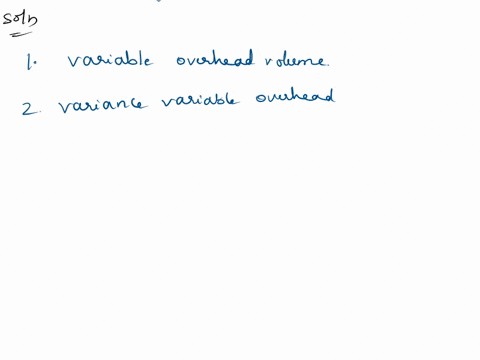 Soln
1. variable overhead volume.
2. variance variable overhead